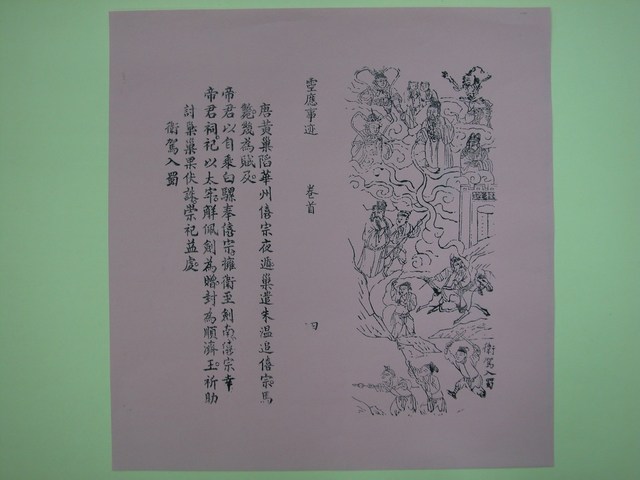 衛駕入蜀
靈應事迹 卷首 四
唐黃巢陷華州僖宗夜遁巢遣朱溫追僖宗馬
斃幾為賊及
帝君以自乘白騾奉僖宗擁衛至劍南僖宗幸
帝君祠祀以太牢解佩劍為贈封為順濟王祈助
討巢巢果伏誅榮祀益虔
衛駕入蜀